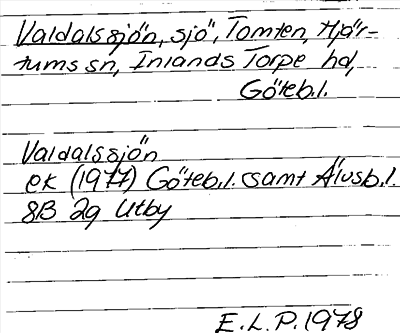 Valdalssjön, sjö, Tomten, Hjär-
tums sn, Inlands Torpe hd,
Göteb.l.
Valdalssjön
ek (1977) Göteb.l. samt Älvsb.l.
8B 2g Utby
E.L.P. 1978